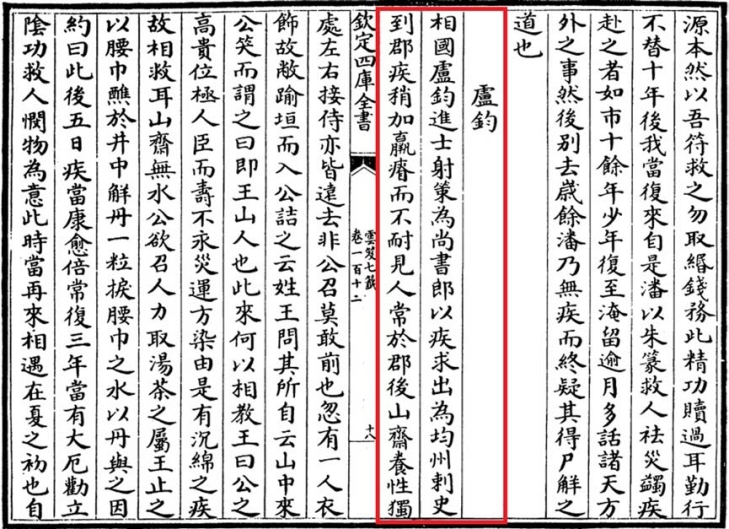 源本然以吾符救之勿取緡錢務此精功贖過耳勤行
不替十年後我當復來自是潘以朱篆救人祛災蠲疾
赴之者如市十餘年少年復至淹留逾月多話諸天方
外之事然後別去歲餘潘乃無疾而終疑其得尸解之
道也
盧鈞
相國盧鈞進士射策為尚書郎以疾求出為均州刺史
到郡疾稍加羸瘠而不耐見人常於郡後山齋養性獨
欽定四庫全書
雲笈七籤
卷一百十二
十八
處左右接侍亦皆遠去非公召莫敢前也忽有一人衣
飾故敝踰垣而入公詰之云姓王問其所自云山中來
公笑而謂之曰即王山人也此來何以相教王曰公之
高貴位極人臣而壽不永災運方染由是有沉綿之疾
故相救耳山齋無水公欲召人力取湯茶之屬王止之
以腰巾蘸於井中解丹一粒捩腰巾之水以丹與之因
約曰此後五日疾當康愈倍常復三年當有大厄勤立
陰功救人憫物為意此時當再來相遇在夏之初也自